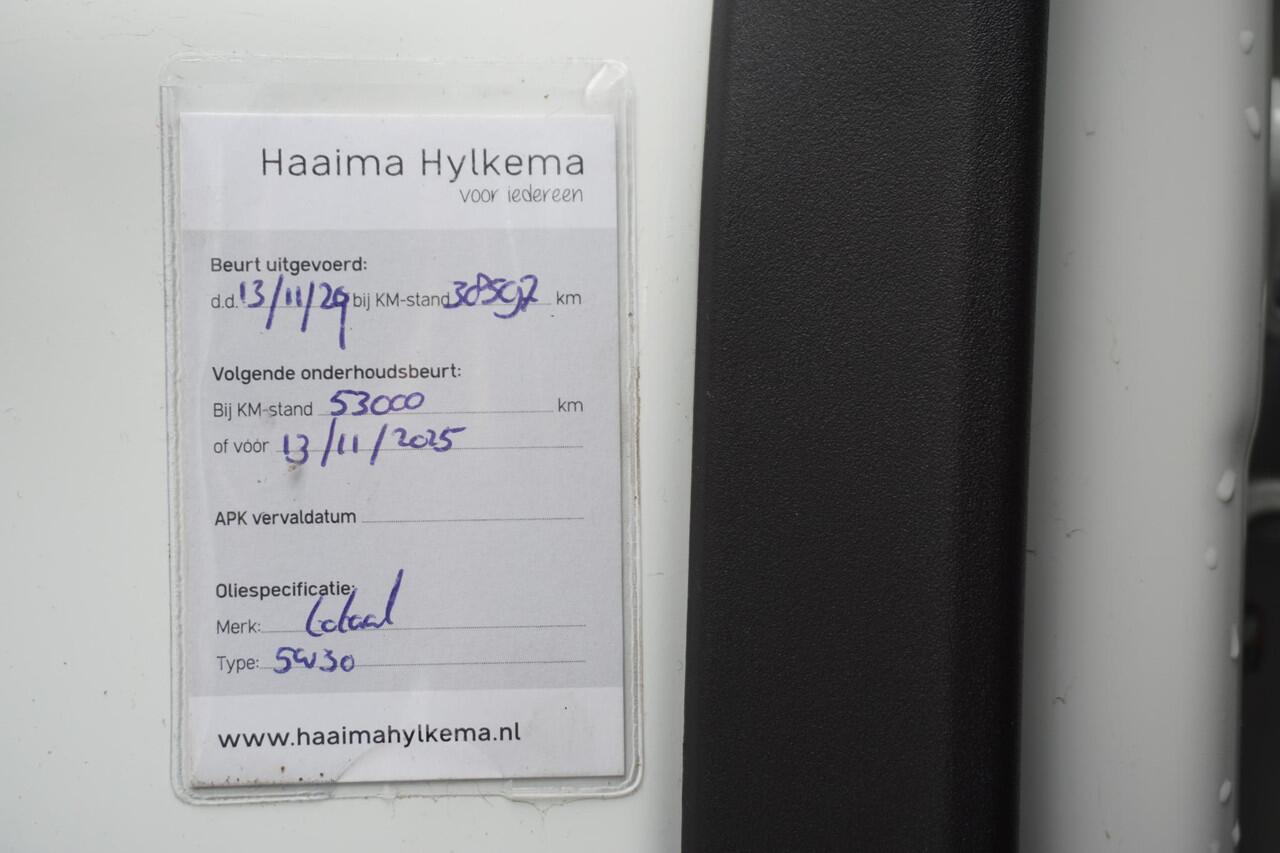 Haaima Hylkema
voor iedereen
Beurt uitgevoerd:
d.d. 13/11/24 bij KM-stand km
Volgende onderhoudsbeurt:
Bij KM-stand 53000 km
of vóór 13/11/2025
APK vervaldatum
Oliespecificatie:
Merk: totaal
Type: 5W30
www.haaimahylkema.nl